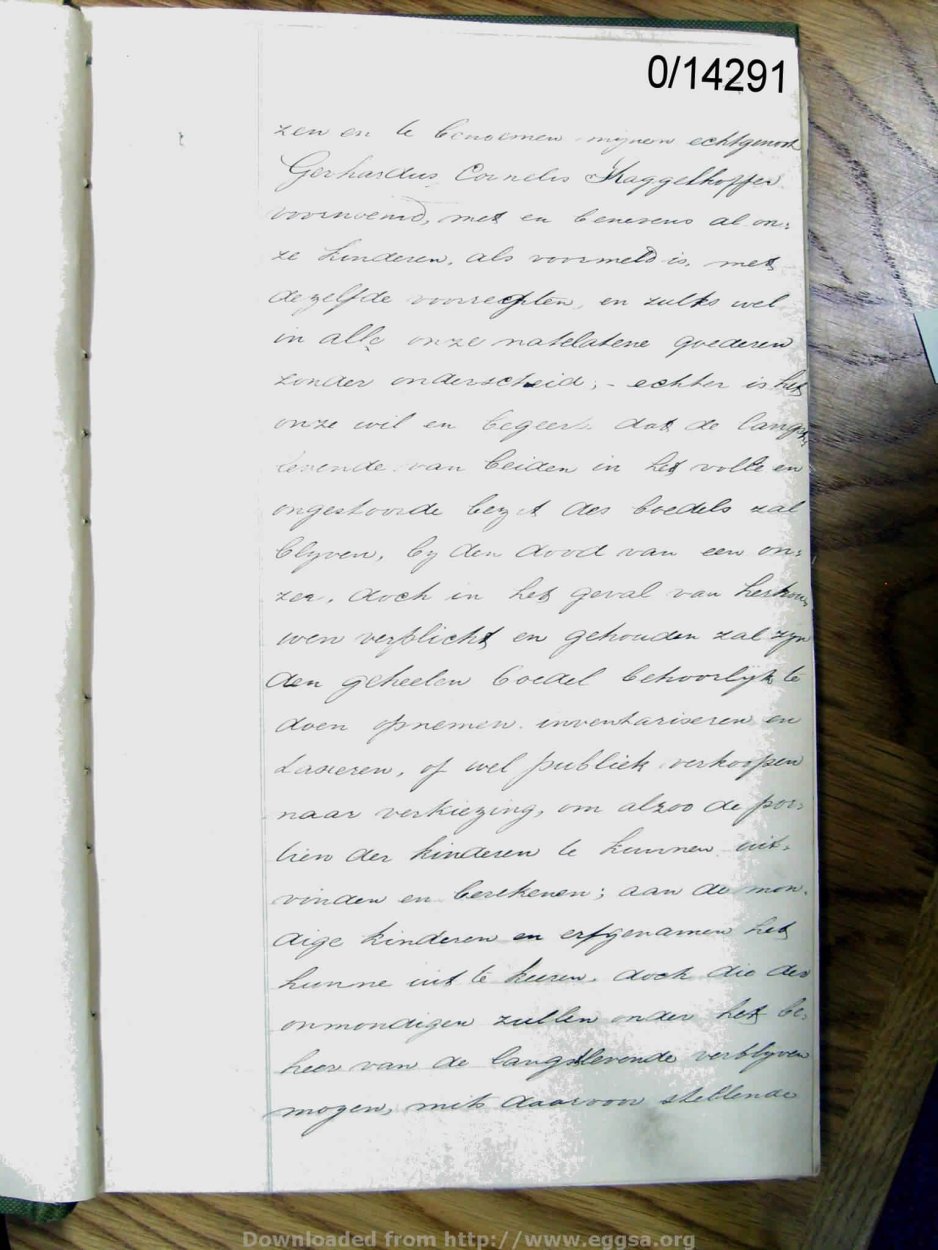 0/14291
zen en te benoemen mijnen echtgenoot
Gerhardus Cornelis Haggelhoffer
voornoemd, met en benevens al on:
ze kinderen, als voormeld is, met
dezelfde voorrechten, en zulks wel
in alle onze natelatene goederen
zonder onderscheid; - echter is het
onze wil en begeerte dat de langst
levende van beiden in het volle en
ongestoorde bezit des boedels zal
blyven, by den dood van een on:
zer, doch in het geval van hertrou:
wen verplicht en gehouden zal zyn
den geheelen boedel behoorlyk te
doen opnemen inventariseren en
taxeren, of wel publiek verkoopen
naar verkiezing, om alzoo de por:
tien der kinderen te kunnen uit:
vinden en berekenen; aan de mon:
dige kinderen en erfgenamen het
hunne uit te keeren, doch die der
onmondigen zullen onder het be:
heer van de langstlevende verblyven
mogen, mits daarvoor stellende
Downloaded from http://www.eggsa.org